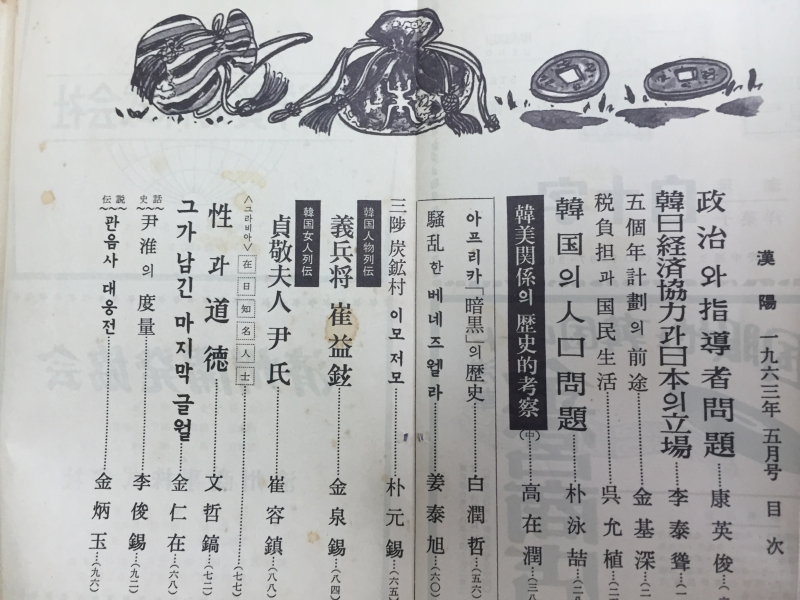 漢陽 一九六三年 五月号 目次
政治와 指導者問題……康英俊
韓日経済協力과 日本의 立場……李泰聳…(一
五個年計劃의 前途……金基深…(二
税負担과 国民生活……呉允植…(二
韓国의 人口問題……朴泳喆…(二八
韓美関係의 歴史的考察(中)……高在潤…(三八
아프리카「暗黒」의 歴史……白潤哲…(五六)
騷乱한 베네즈웰라……姜泰旭…(六〇)
三陟炭鉱村 이모저모……朴元錫…(六五)
韓国人物列伝
義兵将 崔益鉉……金泉錫…(八四)
韓国女人列伝
貞敬夫人 尹氏……崔容鎮…(八八)
〈그라비아〉 在日知名人士……(七七)
性과 道徳……文哲鎬…(七二)
그가 남긴 마지막 글월……金仁在…(六八)
史話 尹淮의 度量……李俊錫…(九二)
伝説 관음사 대웅전……金炳玉…(九六)